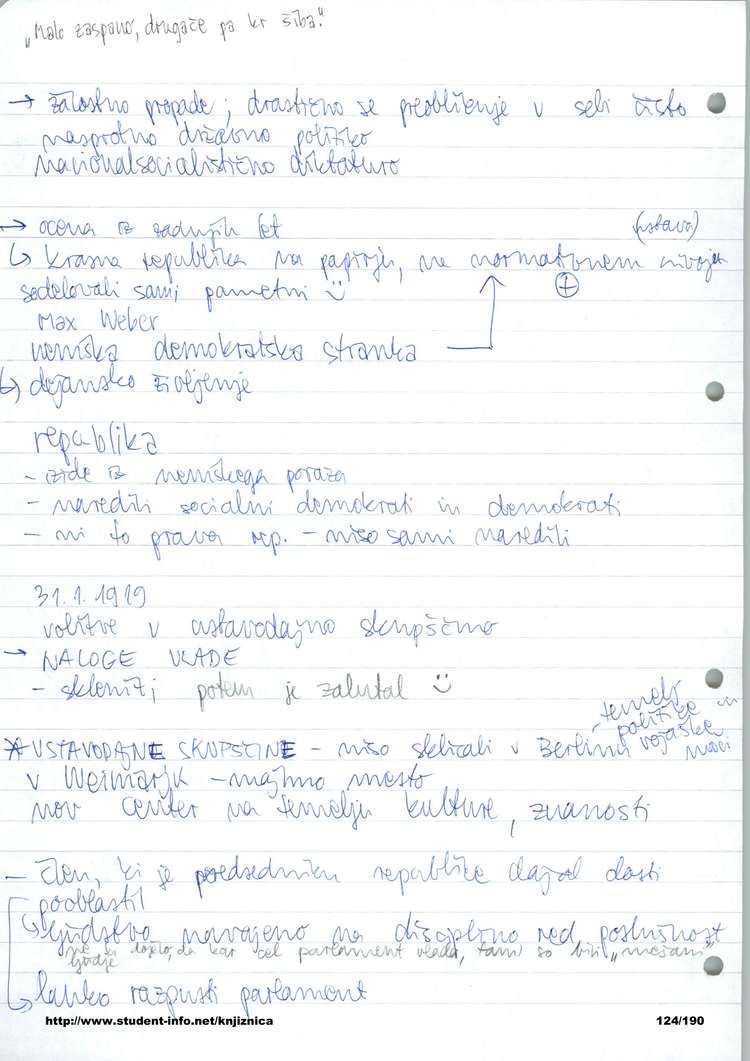 "Malo zaspano, drugače pa kr šiba."
→ žalostno propade; drastično se preoblikuje v sebi čisto
nasprotno državno politiko
nacionalsocialistično diktaturo
→ ocena iz zadnjih let (ustava)
↳ Krasna republika na papirju, na normativnem nivoju
sodelovali sami pametni ☺ ⊕
Max Weber
nemška demokratska stranka
↳ dejansko življenje
republika
- izide iz nemškega poraza
- naredili socialni demokrati in demokrati
- ni to prava rep. - niso sami naredili
31.1.1919
volitve v ustavodajno skupščino
→ NALOGE VLADE
- skleniti potem je zalutal ☺
* USTAVODAJNE SKUPŠČINE - niso sklicali v Berlinu - temelj politične in vojaške moči
v Weimarju - majhno mesto
nov center na temelju kulture, znanosti
- člen, ki je predsedniku republike dajal dosti
pooblastil
↳ ljudstvo navajeno na disciplino, red, poslušnost
ne da dojelo, da kar cel parlament vlada, tam so bili "mešani"
ljudje
↳ lahko razpusti parlament
http://www.student-info.net/knjiznica 124/190